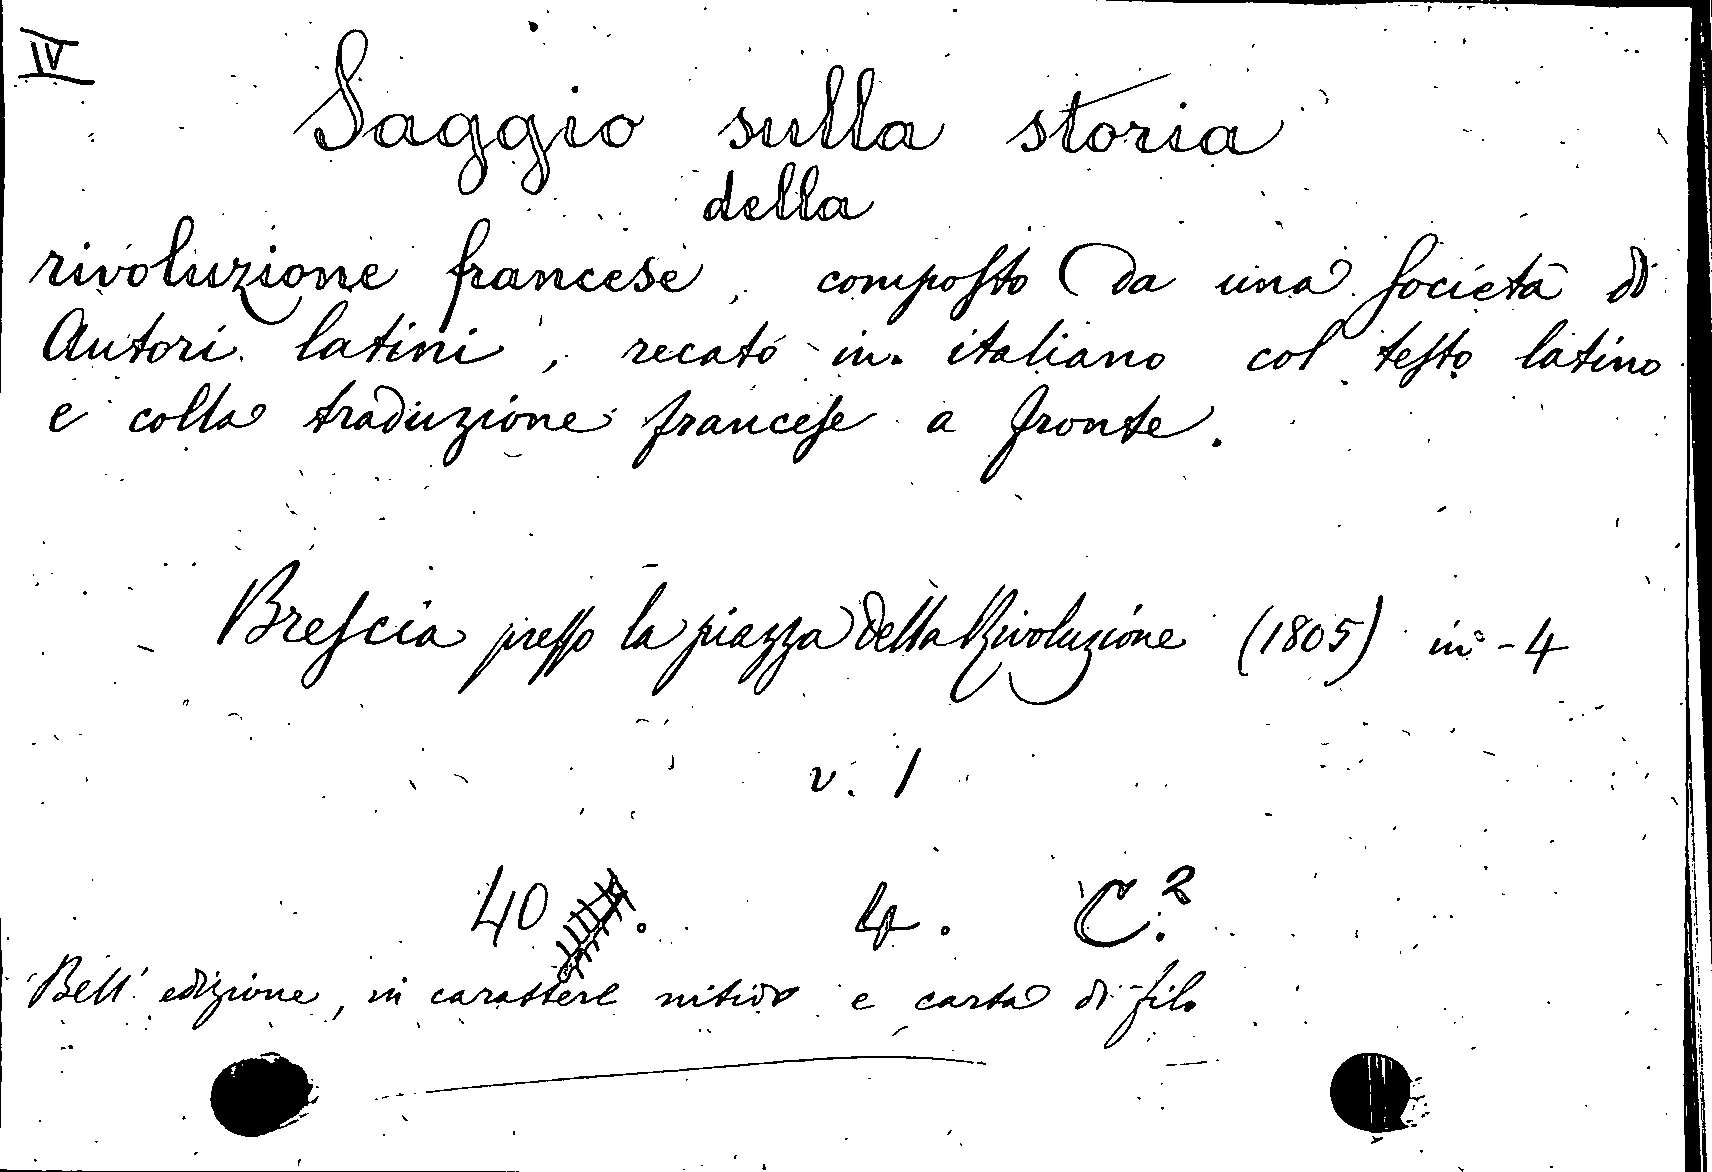 IV
Saggio sulla storia
della
rivoluzione francese, composto da una Società di
Autori latini, recato in italiano col testo latino
e colla traduzione francese a fronte.
Brescia presso la piazza della Rivoluzione (1805) in-4
v. 1
40 . 4. C.2
Bell' edizione, in carattere nitido e carta di filo